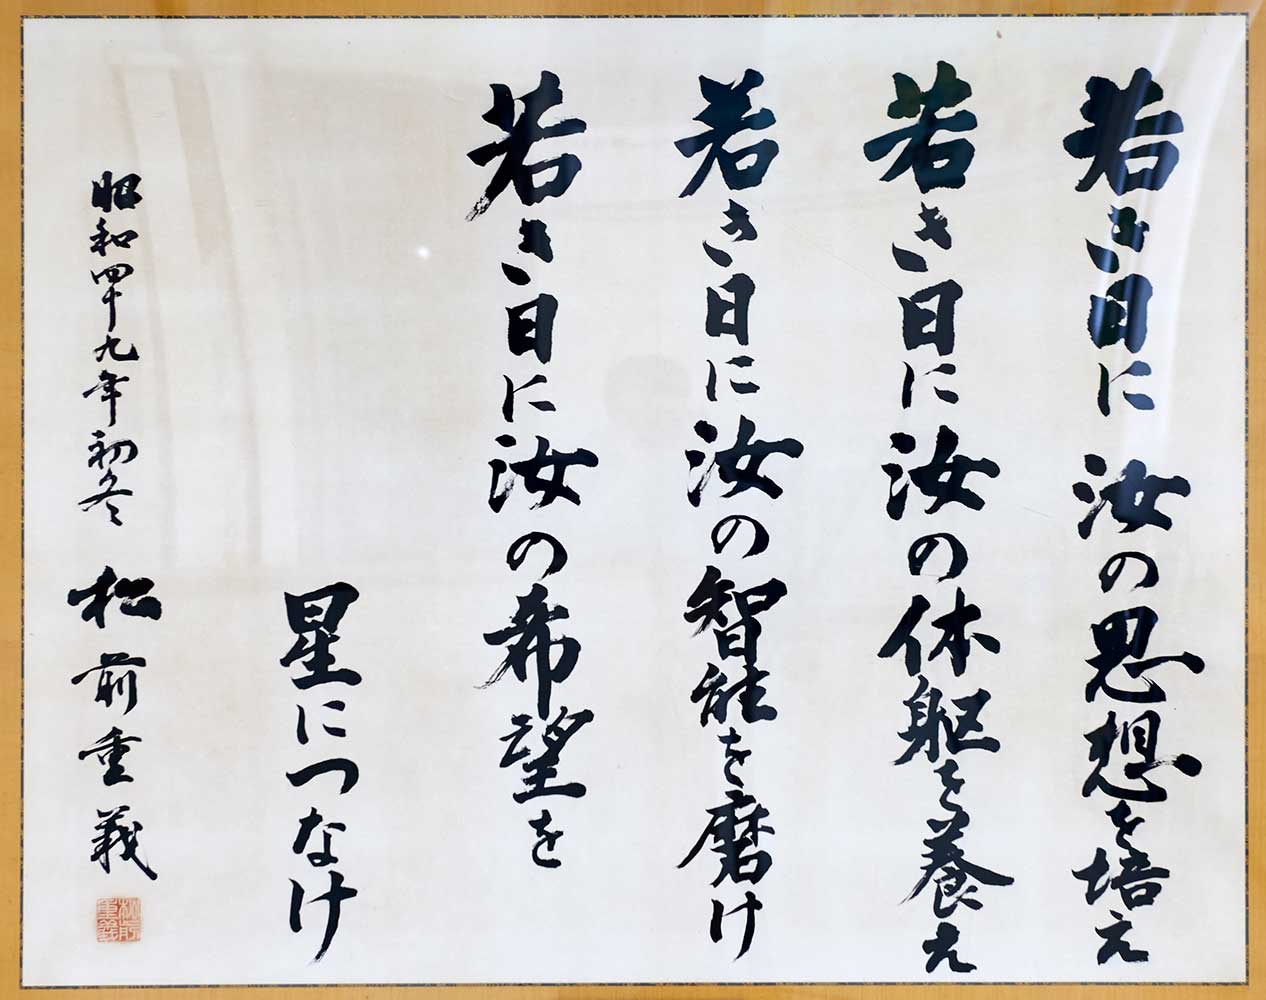 若き日に汝の思想を培え
若き日に汝の体躯を養え
若き日に汝の智能を磨け
若き日に汝の希望を
星につなげ
昭和四十九年初冬 松前重義
松前重義